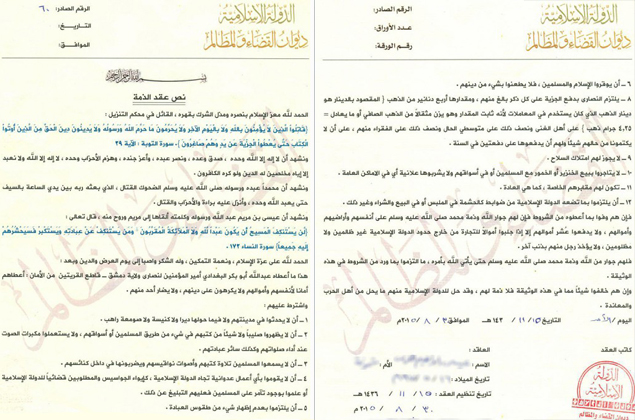 الدولة الإسلامية
ديوان القضاء والمظالم
الرقم الصادر: ٦٠
التاريخ:
الموافق:
بسم الله الرحمن الرحيم
نص عقد الذمة
الحمد لله معز الإسلام بنصره ومذل الشرك بقهره، القائل في محكم التنزيل:
(قاتلوا الذين لا يؤمنون بالله ولا باليوم الآخر ولا يحرمون ما حرم الله ورسوله ولا يدينون دين الحق من الذين أوتوا
الكتاب حتى يعطوا الجزية عن يد وهم صاغرون). سورة التوبة: الآية ٢٩
ونشهد أن لا إله إلا الله وحده، صدق وعده، ونصر عبده، وأعز جنده، وهزم الأحزاب وحده، لا إله إلا الله ولا نعبد
إلا إياه مخلصين له الدين ولو كره الكافرون.
ونشهد أن محمداً عبده ورسوله صلى الله عليه وسلم الضحوك القتال، الذي بعثه ربه بين يدي الساعة بالسيف
حتى يعبد الله وحده، وأنزل عليه براءة والأحزاب والقتال.
ونشهد أن عيسى بن مريم عبد الله ورسوله وكلمته ألقاها إلى مريم وروح منه، قال تعالى:
(لن يستنكف المسيح أن يكون عبداً لله ولا الملائكة المقربون، ومن يستنكف عن عبادته ويستكبر فسيحشرهم
إليه جميعاً) سورة النساء ١٧٢
الحمد لله على عزة الإسلام، ونعمة التمكين، وله الشكر واصباً إلى يوم العرض والدين وبعد:
هذا ما أعطاه عبدالله أبو بكر البغدادي أمير المؤمنين لنصارى ولاية دمشق - قاطع القريتين من الأمان: أعطاهم
أماناً لأنفسهم وأموالهم ولا يكرهون على دينهم، ولا يضار أحد منهم.
واشترط عليهم:
١- أن لا يحدثوا في مدينتهم ولا فيما حولها ديرا ولا كنيسة ولا صومعة راهب.
٢- أن لا يظهروا صليبا ولا شيئاً من كتبهم في شيء من طريق المسلمين أو أسواقهم، ولا يستعملوا مكبرات الصوت
عند أداء صلواتهم وكذلك سائر عباداتهم.
٣- أن لا يسمعوا المسلمين تلاوة كتبهم وأصوات نواقيسهم ويضربونها في داخل كنائسهم.
٤- أن لا يقوموا بأي أعمال عدوانية تجاه الدولة الإسلامية، كإيواء الجواسيس والمطلوبين قضائياً للدولة الإسلامية
أو علموا بوجود تآمر على المسلمين فعليهم التبليغ عن ذلك.
٥- أن يلتزموا بعدم إظهار شيء من طقوس العبادة.
الدولة الإسلامية
ديوان القضاء والمظالم
الرقم الصادر:
عدد الأوراق:
رقم الورقة:
٦- أن يوقروا الإسلام والمسلمين، فلا يطعنوا بشيء من دينهم.
٧- يلتزم النصارى بدفع الجزية على كل ذكر بالغ منهم، ومقدارها أربع دنانير من الذهب (المقصود بالدينار هو
دينار الذهب الذي كان يستخدم في المعاملات لأنه ثابت المقدار وهو يزن مثقالاً من الذهب الصافي أو ما يعادل =
٤.٢٥ جرام ذهب) على أهل الغنى ونصف ذلك على متوسطي الحال ونصف ذلك على الفقراء منهم، على أن لا
يكتمونا من حالهم شيئاً ولهم أن يدفعوها على دفعتين في السنة.
٩- لا يجوز لهم امتلاك السلاح.
١٠- لا يتاجروا ببيع الخنزير أو الخمور مع المسلمين أو في أسواقهم ولا يشربوها علانية أي في الاماكن العامة.
١١- تكون لهم مقابرهم الخاصة، كما هي العادة.
١٢- أن يلتزموا بما تضعه الدولة الإسلامية من ضوابط كالحشمة في الملبس أو في البيع والشراء وغير ذلك.
فإن هم وفوا بما أعطوه من الشروط فإن لهم جوار الله وذمة محمد صلى الله عليه وسلم على أنفسهم وأراضيهم
وأموالهم، ولا يدفعوا عشر أموالهم إلا إذا جلبوا أموالا للتجارة من خارج حدود الدولة الإسلامية غير ظالمين ولا
مظلومين، ولا يؤخذ رجل منهم بذنب آخر.
فلهم جوار من الله وذمة محمد صلى الله عليه وسلم حتى يأتي الله بأمره، ما التزموا بما ورد من الشروط في هذه
الوثيقة.
وإن هم خالفوا شيئا مما في هذه الوثيقة فلا ذمة لهم، وقد حل للدولة الإسلامية منهم ما يحل من أهل الحرب
والمعاندة.
اليوم/ التاريخ ١٥ / ١١ / ١٤٣٦ الموافق: ٣٠ / ٨ / ٢٠١٥ م
كاتب العقد
العاقد:
الأم:
تاريخ الميلاد:
تاريخ تنظيم العقد: ١٥ / ١١ / ١٤٣٦ هـ
٣٠ / ٨ / ٢٠١٥ م
الدولة
الإسلامية